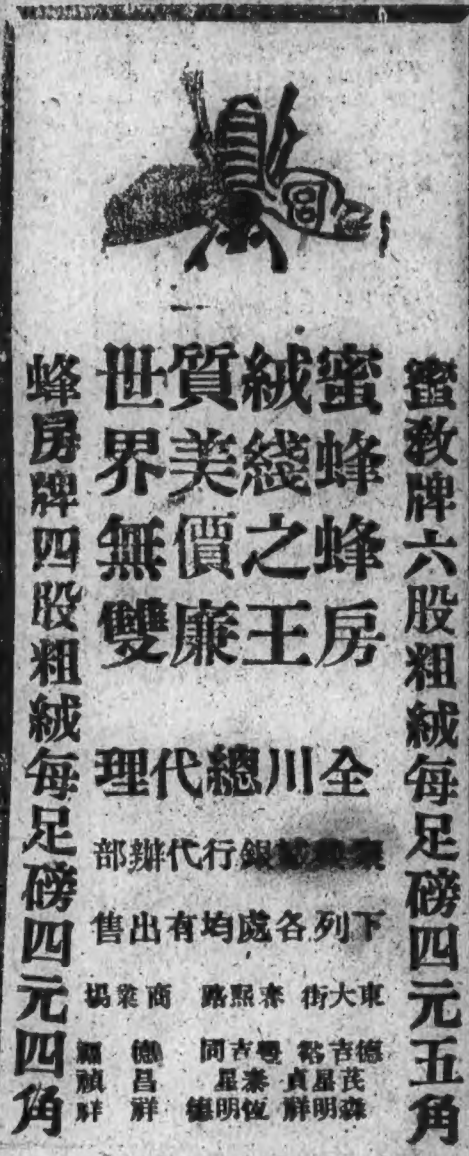 蜜敎牌六股粗絨每足磅四元五角
蜜蜂蜂房
絨綫之王
質美價廉
世界無雙
全川總代理
銀行代辦部
下列各處均有出售
東大街 春熙路 商業場
德茂森
吉星明
裕貞祥
吉星明
同德
德昌祥
蜂房牌四股粗絨每足磅四元四角